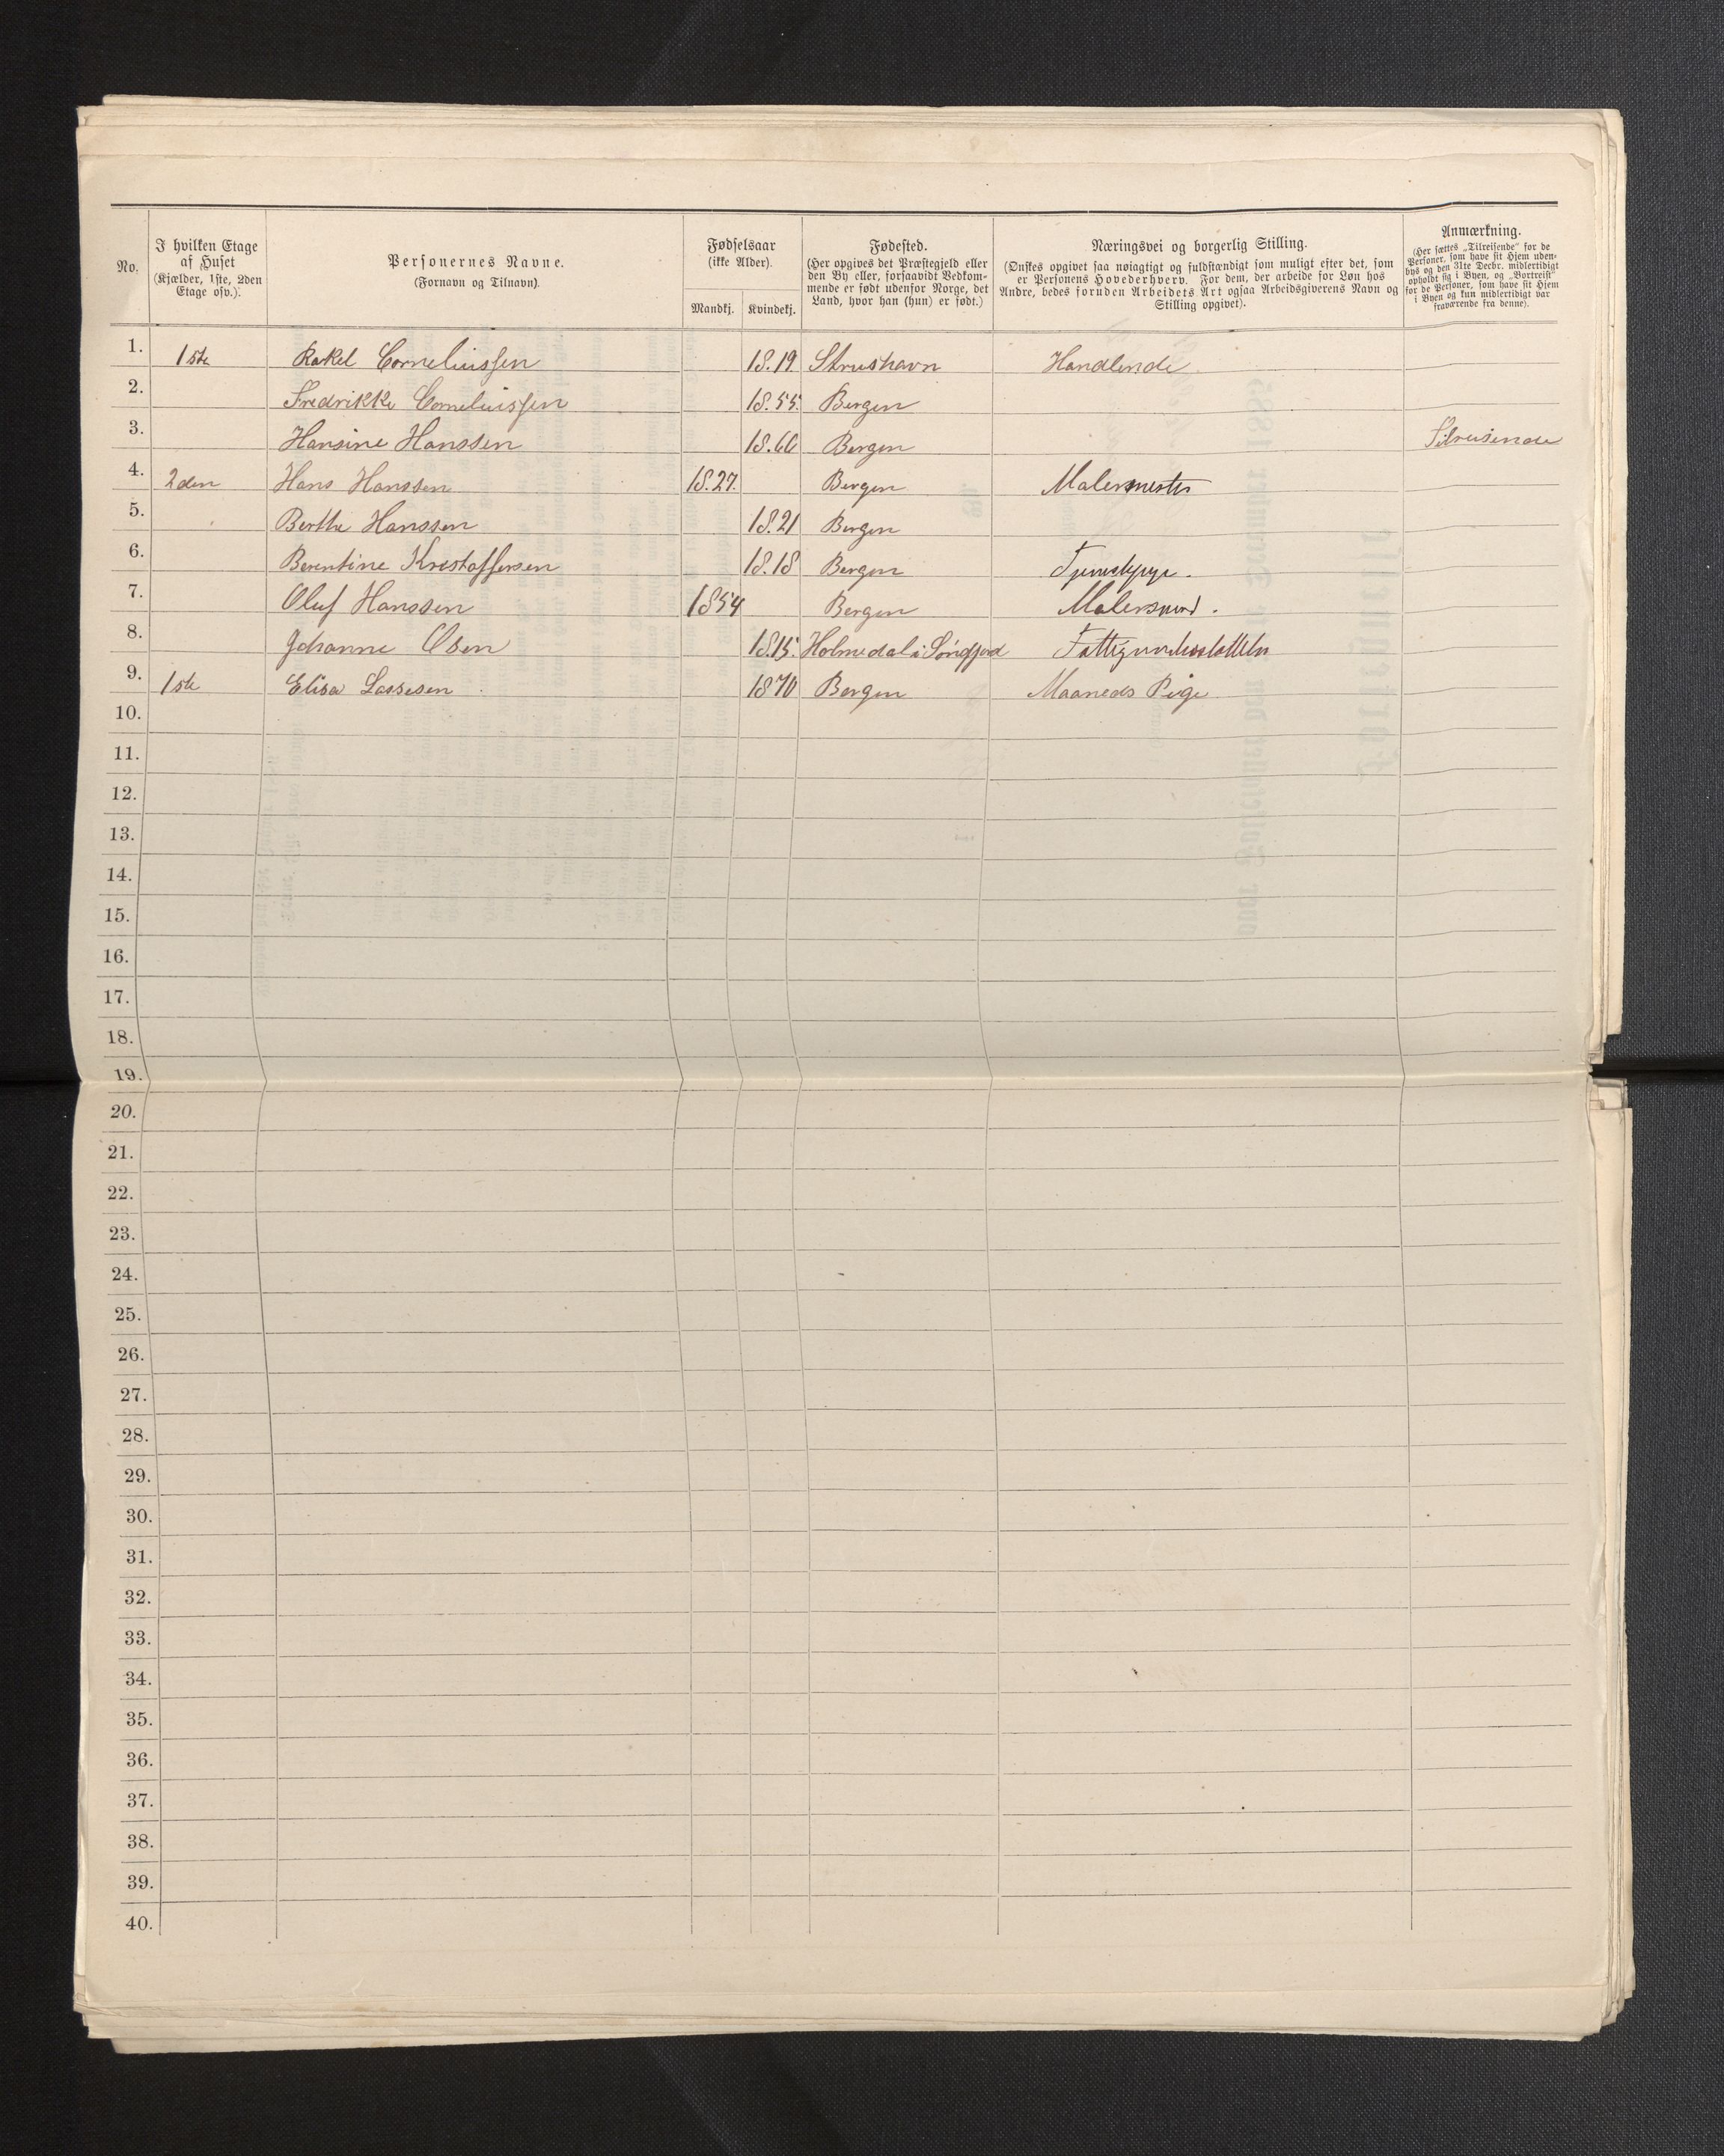 No.
I hvilken Etage
af Huset
(Kjælder, 1ste, 2den
Etage osv.).
Personernes Navne.
(Fornavn og Tilnavn).
Fødselsaar
(ikke Alder).
Mandkj. Kvindekj.
Fødested.
(Her opgives det Præstegjeld eller
den By eller, forsaavidt Vedkom-
mende er født udenfor Norge, det
Land, hvor han (hun) er født.)
Næringsvei og borgerlig Stilling.
(Ønskes opgivet saa nøiagtigt og fuldstændigt som muligt efter det, som
er Personens Hovederhverv. For dem, der arbeide for Løn hos
Andre, bedes foruden Arbeidets Art ogsaa Arbeidsgiverens Navn og
Stilling opgivet).
Anmærkning.
(Her sættes „Tilreisende" for de
Personer, som have sit Hjem uden-
bys og den 31te Decbr. midlertidigt
opholdt sig i Byen, og „Bortreist"
for de Personer, som have sit Hjem
i Byen og kun midlertidigt var
fraværende fra denne).
1. 1ste Rakel Corneliussen 18.19 Strushavn Handlende
2. Fredrikke Corneliussen 18.55. Bergen
3. Hansine Hanssen 18.66 Bergen Tilreisende
4. 2den Hans Hanssen 18.27. Bergen Malermester
5. Berthe Hanssen 18.21 Bergen
6. Berentine Kristoffersen 18.18 Bergen
7. Oluf Hanssen 1854 Bergen Malersvend.
8. Johanne Olsen 18.15. Holmedal i Søndfjord
9. 1ste Elisa Lassesen 1870 Bergen Maaneds Pige
10.
11.
12.
13.
14.
15.
16.
17.
18.
19.
20.
21.
22.
23.
24.
25.
26.
27.
28.
29.
30.
31.
32.
33.
34.
35.
36.
37.
38.
39.
40.